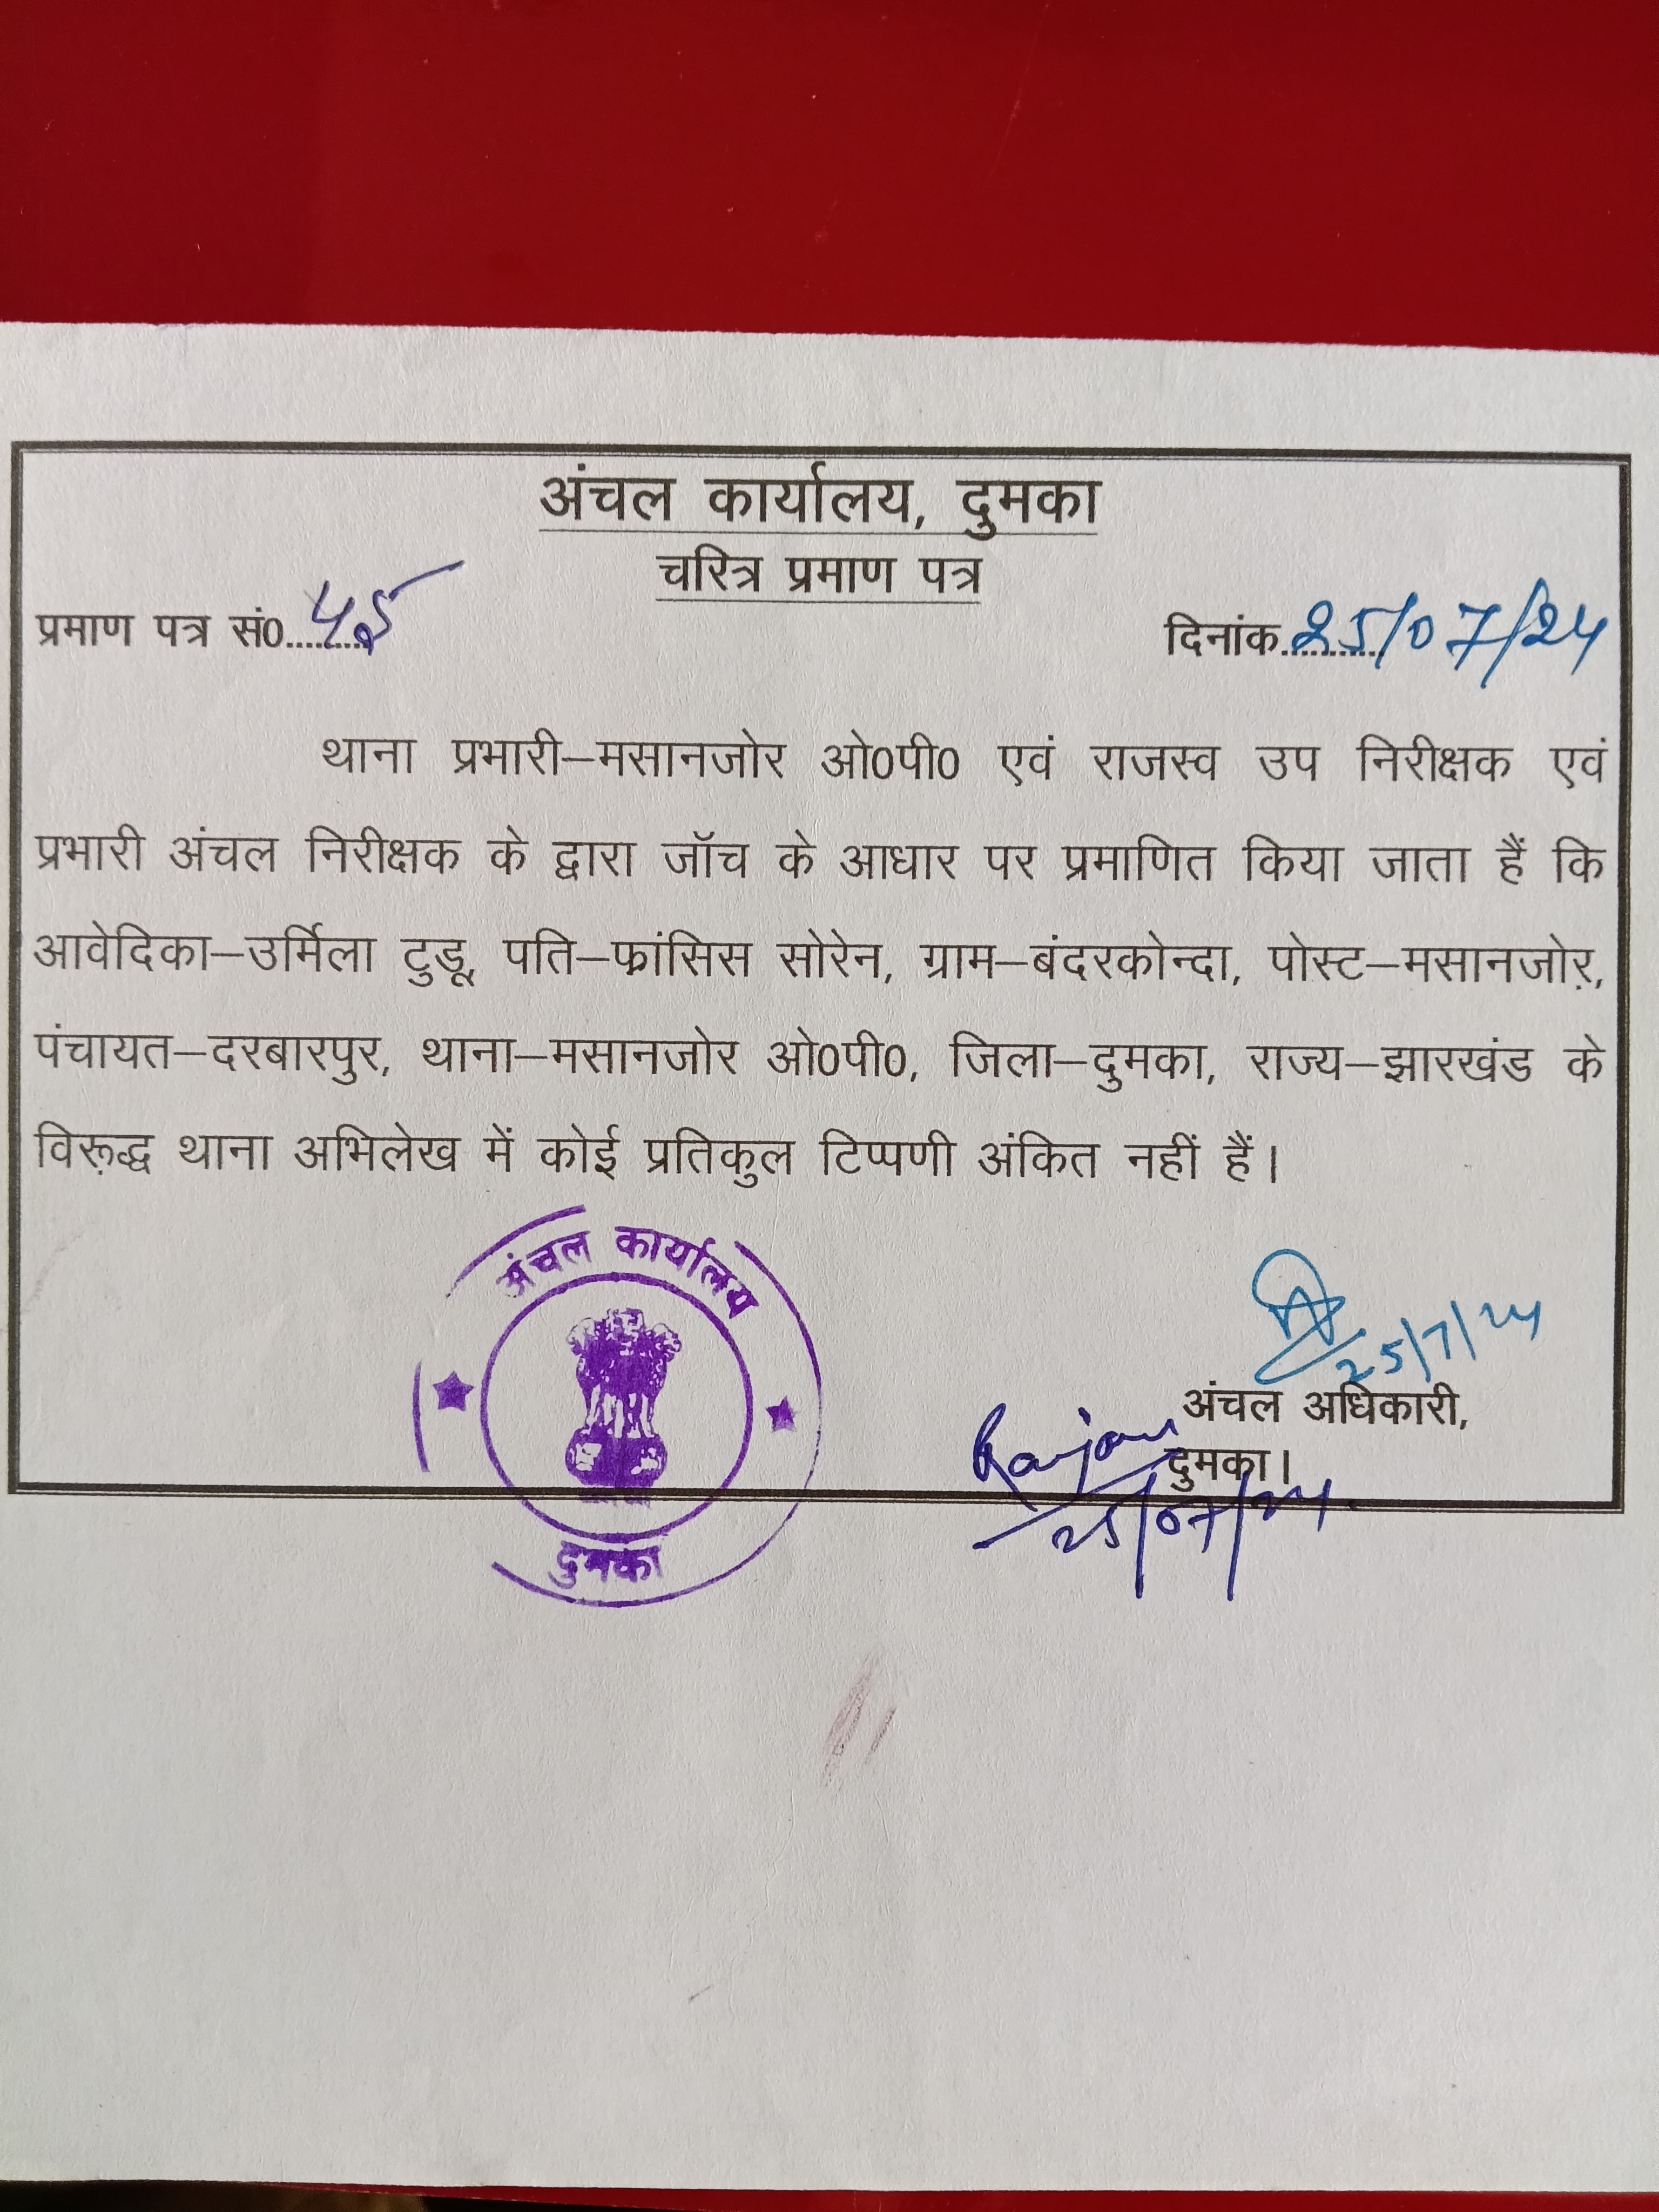 अंचल कार्यालय, दुमका
चरित्र प्रमाण पत्र
प्रमाण पत्र सं0........
दिनांक 25/07/24
थाना प्रभारी–मसानजोर ओ0पी0 एवं राजस्व उप निरीक्षक एवं
प्रभारी अंचल निरीक्षक के द्वारा जॉच के आधार पर प्रमाणित किया जाता हैं कि
आवेदिका–उर्मिला टुडू, पति–फ्रांसिस सोरेन, ग्राम–बंदरकोन्दा, पोस्ट–मसानजोर,
पंचायत–दरबारपुर, थाना–मसानजोर ओ0पी0, जिला–दुमका, राज्य–झारखंड के
विरूद्ध थाना अभिलेख में कोई प्रतिकुल टिप्पणी अंकित नहीं हैं।
अंचल कार्यालय
दुमका
25/7/24
अंचल अधिकारी,
दुमका।
Ranjan
25/07/24